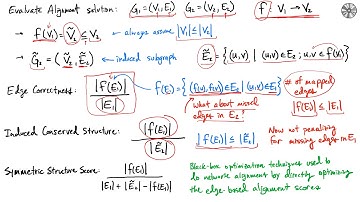 Evaluate Alignment solution: G₁=(V₁,E₁) G₂=(V₂,E₂) f: V₁→V₂
→ f(V₁)=Ṽ₂ ⊆ V₂ ← always assume |V₁|≤|V₂|
→ G̃₂=(Ṽ₂,Ẽ₂) ← induced subgraph Ẽ₂={(u,v) | (u,v)∈E₂; u,v∈f(V₁)}
Edge Correctness: |f(E₁)| / |E₁| f(E₁)={(f(u),f(v))∈E₂ | (u,v)∈E₁} # of mapped edges
What about missed edges in E₂? |f(E₁)|≤|E₁|
Induced Conserved Structure: |f(E₁)| / |Ẽ₂| |f(E₁)|≤|Ẽ₂| Now not penalizing for missing edges in E₁
Symmetric Structure Score: |f(E₁)| / |E₁|+|Ẽ₂|-|f(E₁)|
Black-box optimization techniques used to
do network alignment by directly optimizing
the edge based alignment scores